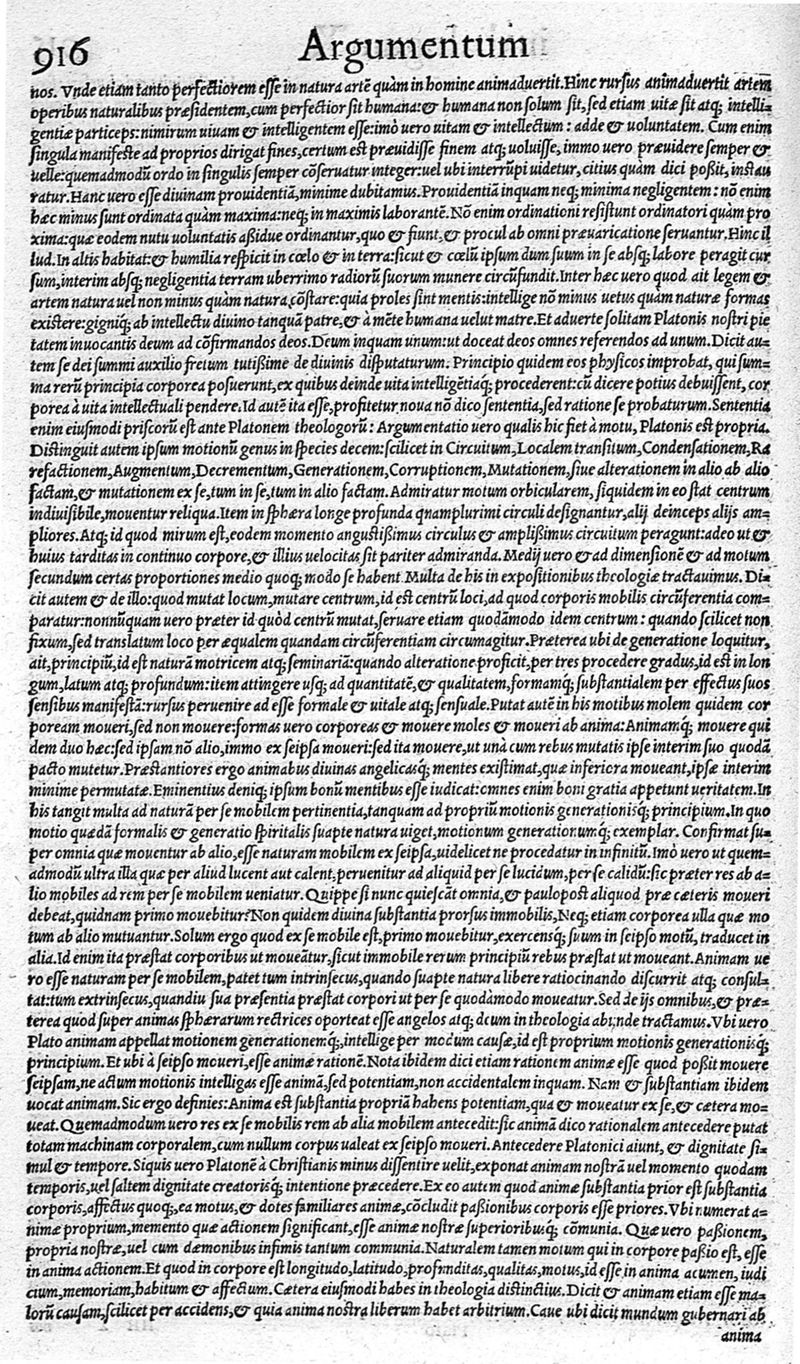 916 Argumentum
nos. Vnde etiam tanto perfectiorem esse in natura artẽ quàm in homine animaduertit. Hinc rursus animaduertit artem
operibus naturalibus præsidentem, cum perfectior sit humana: & humana non solum sit, sed etiam uitæ sit atq; intelli-
gentiæ particeps: nimirum uiuam & intelligentem esse: imò uero uitam & intellectum: adde & uoluntatem. Cum enim
singula manifeste ad proprios dirigat fines, certum est præuidisse finem atq; uoluisse, immo uero præuidere semper &
uelle: quemadmodũ ordo in singulis semper cõseruatur integer: uel ubi interrũpi uidetur, citius quàm dici poßit, instau
ratur. Hanc uero esse diuinam prouidentiã, minime dubitamus. Prouidentiã inquam neq; minima negligentem: nõ enim
hæc minus sunt ordinata quàm maxima: neq; in maximis laborantẽ. Nõ enim ordinationi resistunt ordinatori quàm pro
xima: quæ eodem nutu uoluntatis aßidue ordinantur, quo & fiunt, & procul ab omni præuaricatione seruantur. Hinc il
lud. In altis habitat: & humilia respicit in cœlo & in terra: sicut & cœlũ ipsum dum suum in se absq; labore peragit cur
sum, interim absq; negligentia terram uberrimo radiorũ suorum munere circũfundit. Inter hæc uero quod ait legem &
artem natura uel non minus quàm natura, cõstare: quia proles sint mentis: intellige nõ minus uetus quàm naturæ formas
existere: gigniq; ab intellectu diuino tanquã patre, & à mẽte humana uelut matre. Et aduerte solitam Platonis nostri pie
tatem inuocantis deum ad cõfirmandos deos. Deum inquam unum: ut doceat deos omnes referendos ad unum. Dicit au-
tem se dei summi auxilio fretum tutißime de diuinis disputaturum. Principio quidem eos physicos improbat, qui sum-
ma rerũ principia corporea posuerunt, ex quibus deinde uita intelligẽtiaq; procederent: cũ dicere potius debuissent, cor
porea à uita intellectuali pendere. Id autẽ ita esse, profitetur noua nõ dico sententia, sed ratione se probaturum. Sententia
enim eiusmodi priscorũ est ante Platonem theologorũ: Argumentatio uero qualis hic fiet à motu, Platonis est propria.
Distinguit autem ipsum motionũ genus in species decem: scilicet in Circuitum, Localem transitum, Condensationem, Ra
refactionem, Augmentum, Decrementum, Generationem, Corruptionem, Mutationem, siue alterationem in alio ab alio
factam, & mutationem ex se, tum in se, tum in alio factam. Admiratur motum orbicularem, siquidem in eo stat centrum
indiuisibile, mouentur reliqua. Item in sphæra longe profunda quamplurimi circuli designantur, alij deinceps alijs am-
pliores. Atq; id quod mirum est, eodem momento angustißimus circulus & amplißimus circuitum peragunt: adeo ut &
huius tarditas in continuo corpore, & illius uelocitas sit pariter admiranda. Medij uero & ad dimensionẽ & ad motum
secundum certas proportiones medio quoq; modo se habent. Multa de his in expositionibus theologiæ tractauimus. Di-
cit autem & de illo: quod mutat locum, mutare centrum, id est centrũ loci, ad quod corporis mobilis circũferentia com-
paratur: nonnũquam uero præter id quòd centrũ mutat, seruare etiam quodãmodo idem centrum: quando scilicet non
fixum, sed translatum loco per æqualem quandam circũferentiam circumagitur. Præterea ubi de generatione loquitur,
ait, principiũ, id est naturã motricem atq; seminariã: quando alteratione proficit, per tres procedere gradus, id est in lon
gum, latum atq; profundum: item attingere usq; ad quantitatẽ, & qualitatem, formamq; substantialem per effectus suos
sensibus manifestã: rursus peruenire ad esse formale & uitale atq; sensuale. Putat autẽ in his motibus molem quidem cor
poream moueri, sed non mouere: formas uero corporeas & mouere moles & moueri ab anima: Animamq; mouere qui
dem duo hæc: sed ipsam nõ alio, immo ex seipsa moueri: sed ita mouere, ut unà cum rebus mutatis ipse interim suo quodã
pacto mutetur. Præstantiores ergo animabus diuinas angelicasq; mentes existimat, quæ inferiora moueant, ipsæ interim
minime permutatæ. Eminentius deniq; ipsum bonũ mentibus esse iudicat: omnes enim boni gratia appetunt ueritatem. In
his tangit multa ad naturã per se mobilem pertinentia, tanquam ad propriũ motionis generationisq; principium. In quo
motio quædã formalis & generatio spiritalis suapte natura uiget, motionum generationumq; exemplar. Confirmat su-
per omnia quæ mouentur ab alio, esse naturam mobilem ex seipsa, uidelicet ne procedatur in infinitũ. Imò uero ut quem-
admodũ ultra illa quæ per aliud lucent aut calent, peruenitur ad aliquid per se lucidum, per se calidũ: sic præter res ab a-
lio mobiles ad rem per se mobilem ueniatur. Quippe si nunc quiescãt omnia, & paulopost aliquod præ cæteris moueri
debeat, quidnam primo mouebitur? Non quidem diuina substantia prorsus immobilis, Neq; etiam corporea ulla quæ mo
tum ab alio mutuantur. Solum ergo quod ex se mobile est, primo mouebitur, exercensq; suum in seipso motũ, traducet in
alia. Id enim ita præstat corporibus ut moueãtur, sicut immobile rerum principiũ rebus præstat ut moueant. Animam ue
ro esse naturam per se mobilem, patet tum intrinsecus, quando suapte natura libere ratiocinando discurrit atq; consul-
tat: tum extrinsecus, quandiu sua præsentia præstat corpori ut per se quodãmodo moueatur. Sed de ijs omnibus, & præ-
terea quod super animas sphærarum rectrices oporteat esse angelos atq; deum in theologia abunde tractamus. Vbi uero
Plato animam appellat motionem generationemq;, intellige per modum causæ, id est proprium motionis generationisq;
principium. Et ubi à seipso moueri, esse animæ rationẽ. Nota ibidem dici etiam rationem animæ esse quod poßit mouere
seipsam, ne actum motionis intelligas esse animã, sed potentiam, non accidentalem inquam. Nam & substantiam ibidem
uocat animam. Sic ergo definies: Anima est substantia propriã habens potentiam, qua & moueatur ex se, & cætera mo-
ueat. Quemadmodum uero res ex se mobilis rem ab alia mobilem antecedit: sic animã dico rationalem antecedere putat
totam machinam corporalem, cum nullum corpus ualeat ex seipso moueri. Antecedere Platonici aiunt, & dignitate si-
mul & tempore. Siquis uero Platonẽ à Christianis minus dissentire uelit, exponat animam nostrã uel momento quodam
temporis, uel saltem dignitate creatorisq; intentione præcedere. Ex eo autem quod animæ substantia prior est substantia
corporis, affectus quoq;, ea motus, & dotes familiares animæ, cõcludit paßionibus corporis esse priores. Vbi numerat a-
nimæ proprium, memento quæ actionem significant, esse animæ nostræ superioribusq; cõmunia. Quæ uero paßionem,
propria nostræ, uel cum dæmonibus infimis tantum communia. Naturalem tamen motum qui in corpore paßio est, esse
in anima actionem. Et quod in corpore est longitudo, latitudo, profunditas, qualitas, motus, id esse in anima acumen, iudi
cium, memoriam, habitum & affectum. Cætera eiusmodi habes in theologia distinctius. Dicit & animam etiam esse ma-
lorũ causam, scilicet per accidens, & quia anima nostra liberum habet arbitrium. Caue ubi dicit mundum gubernari ab
anima